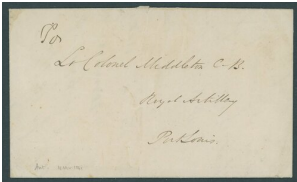 To
Lt Colonel Middleton C.B.
Royal Artillery
Port Louis.